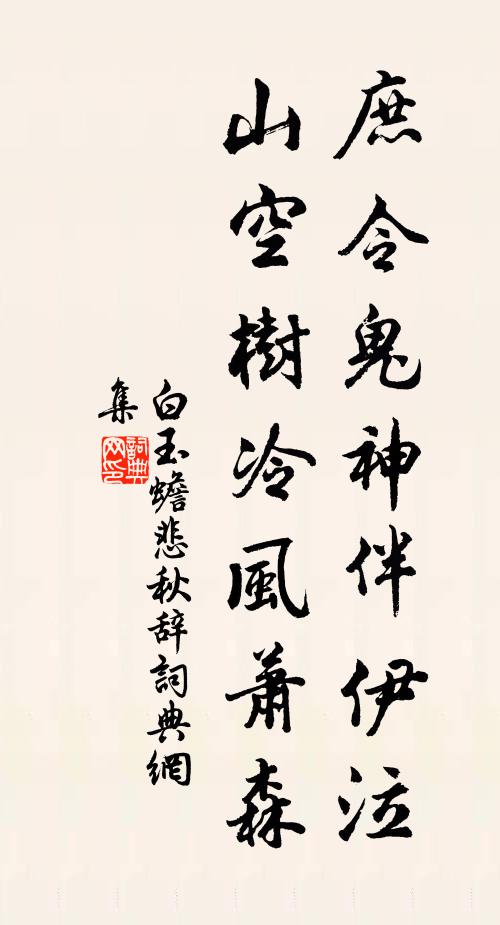 庶令鬼神伴伊泣
山空樹冷風蕭森
白玉蟾悲秋辞詞典網
集
詞典网印